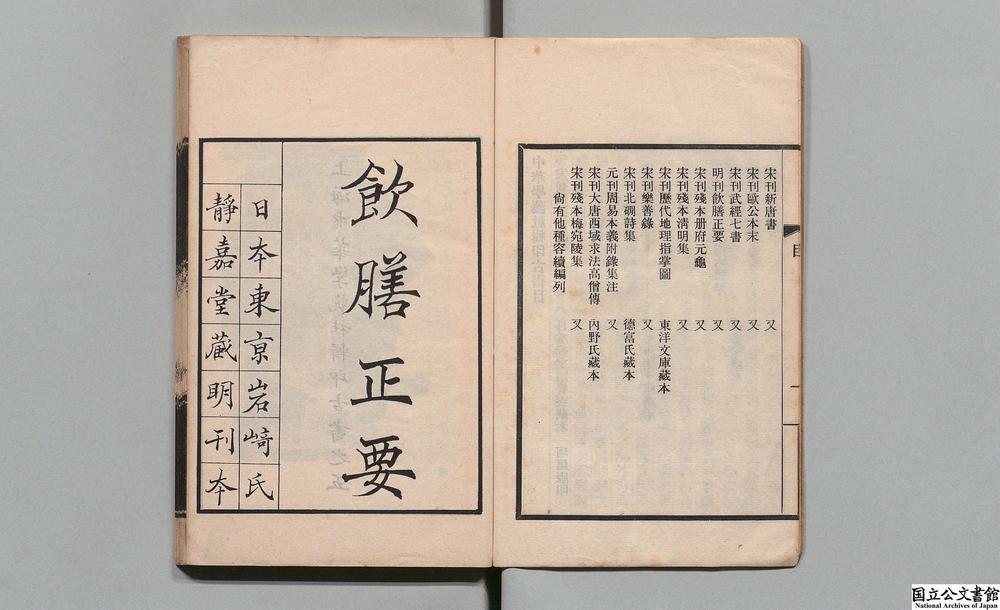 宋刊新唐書 又
宋刊歐公本末 又
宋刊武經七書 又
明刊飲膳正要 又
宋刊殘本册府元龜 又
宋刊殘本清明集 又
宋刊歷代地理指掌圖 東洋文庫藏本
宋刊樂善錄 又
宋刊北磵詩集 德富氏藏本
元刊周易本義附錄集注 又
宋刊大唐西域求法高僧傳 內野氏藏本
宋刊殘本梅宛陵集 又
尙有他種容續編列
飲膳正要
日本東京岩﨑氏
靜嘉堂藏明刊本
国立公文書館
National Archives of Japan